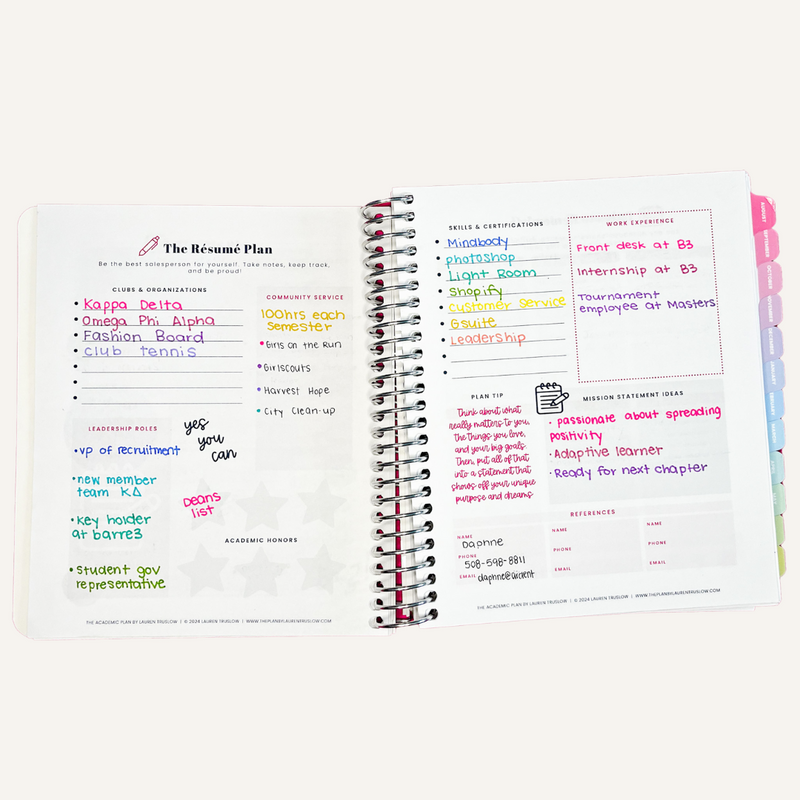 The Résumé Plan
Be the best salesperson for yourself. Take notes, keep track,
and be proud!
CLUBS & ORGANIZATIONS
Kappa Delta
Omega Phi Alpha
Fashion Board
club tennis
COMMUNITY SERVICE
100hrs each
semester
Girls on the Run
Girlscouts
Harvest Hope
City Clean-up
LEADERSHIP ROLES
vp of recruitment
new member
team KΔ
key holder
at barre3
student gov
representative
yes
you
can
Deans
list
ACADEMIC HONORS
THE ACADEMIC PLAN BY LAUREN TRUSLOW | © 2024 LAUREN TRUSLOW | WWW.THEPLANBYLAURENTRUSLOW.COM
SKILLS & CERTIFICATIONS
Mindbody
photoshop
Light Room
Shopify
customer service
Gsuite
Leadership
WORK EXPERIENCE
Front desk at B3
Internship at B3
Tournament
employee at Masters
PLAN TIP
Think about what
really matters to you,
the things you love,
and your big goals.
Then, put all of that
into a statement that
shows off your unique
purpose and dreams
MISSION STATEMENT IDEAS
passionate about spreading
positivity
Adaptive learner
Ready for next chapter
REFERENCES
NAME
Daphne
PHONE
508-598-8811
EMAIL
NAME
PHONE
EMAIL
NAME
PHONE
EMAIL
THE ACADEMIC PLAN BY LAUREN TRUSLOW | © 2024 LAUREN TRUSLOW | WWW.THEPLANBYLAURENTRUSLOW.COM
AUGUST
SEPTEMBER
OCTOBER
NOVEMBER
DECEMBER
JANUARY
FEBRUARY
MARCH